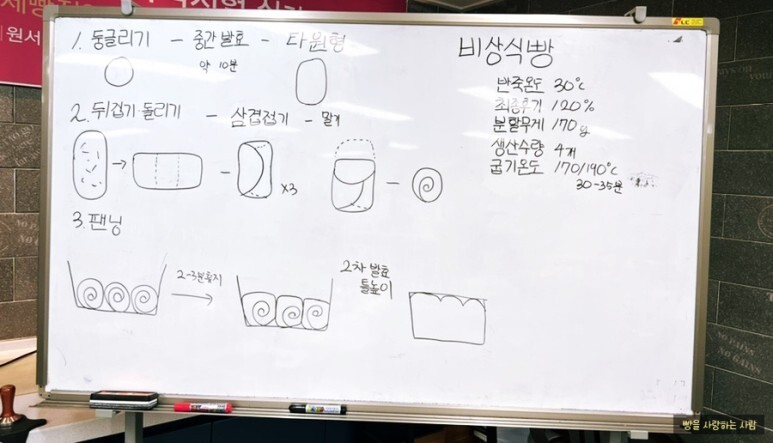 1. 둥글리기 - 중간발효 - 타원형
약 10분
2. 뒤집기·돌리기 - 삼겹접기 - 말기
×3
3. 팬닝
2-3분휴지
2차 발효
틀높이
비상식빵
반죽온도 30℃
최종후기 120%
분할무게 170g
생산수량 4개
굽기온도 170/190℃
30-35분
빵을 사랑하는 사람